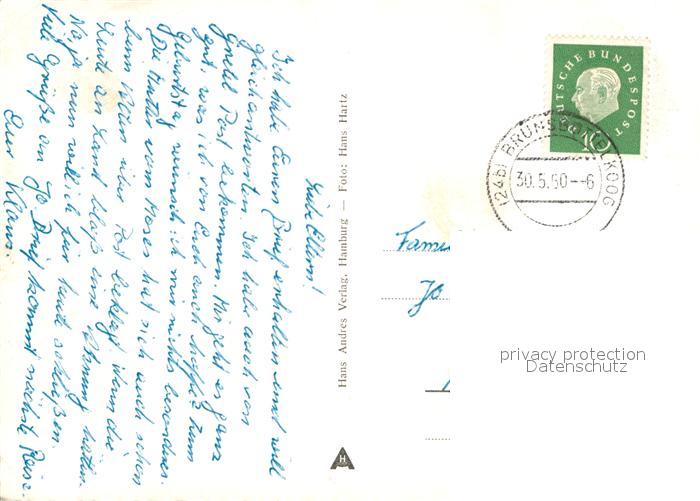 Liebe Eltern!
Ich habe Euren Brief erhalten und will
gleich antworten. Ich habe auch von
Gretel Post bekommen. Mir geht es ganz
gut, was ich von Euch auch hoffe. Zum
Geburtstag wünsch ich mir nichts besonderes.
Die Mutter vom Moses hat sich auch schon
beim über Post beklagt wenn die
Leute an Land bloß eine Ahnung hätten.
Na, ja nun will ich für heute schließen.
Viele Grüße an Jo Brief kommt nächste Reise.
Euer Klaus.
Hans Andres Verlag, Hamburg — Foto: Hans Hartz
H
DEUTSCHE BUNDESPOST
10
(24b) BRUNSBÜTTELKOOG
30.5.60--6
Fami
Jo
privacy protection
Datenschutz